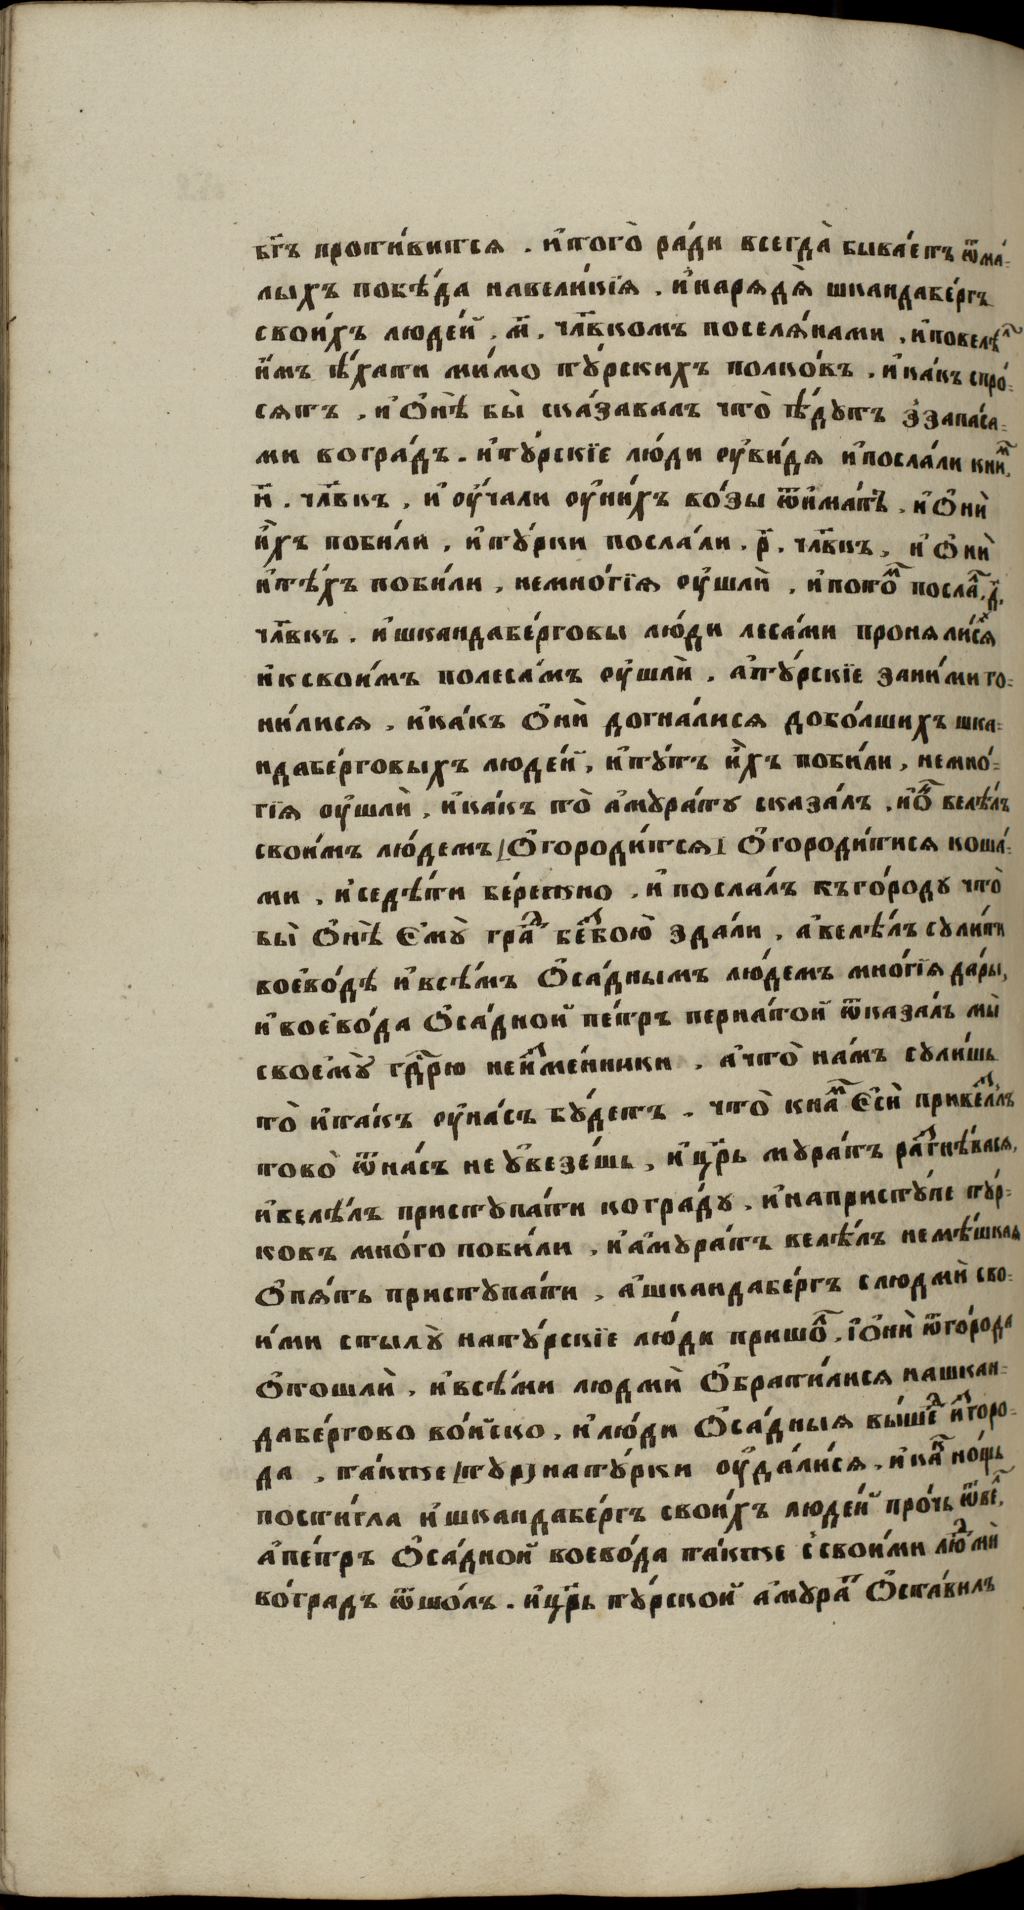 бг҃ъ проти́вится . и҆того̀ ра́ди всегда̀ быва́етъ ѿма́-
лыхъ побѣ́да навели́кїя . и҆нарядя̀ шкандабе́ргъ
свои́хъ люде́й . м҃ . чл҃вкомъ поселя́нами , и҆повелѣⷧ҇
и҆́мъ ѣ҆́хати ми́мо ту́рскихъ полко́въ . и҆ка́къ спро́-
сятъ , и҆ѻ҆нѣ̀ бы̀ ска́завалъ что̀ ѣ҆́дутъ ззапа́са-
ми воградъ . и҆ту́рскїе лю́ди оу҆ви́дя и҆посла́ли книⷨ҇,
н҃ . чл҃вкъ , и҆ оу҆́чали оу҆ни́хъ во́зы ѿима́ть , и҆ѻ҆нѝ
и҆̀хъ поби́ли , и҆ту́рки посла́ли . р҃ . чл҃вкъ , и҆ ѻ҆нѝ
и҆тѣ́хъ поби́ли , немно́гїя оу҆шлѝ , и҆потоⷨ҇ послаⷧ҇ . д҃ .
чл҃вкъ . и҆шкандабе́рговы лю́ди леса́ми пронялиⷭ҇ѧ
и҆ксвои́мъ полеса́мъ оу҆шлѝ , а҆ту́рскїе зани́ми го-
ни́лися , и҆ка́къ ѻ҆нѝ догна́лися добо́лшихъ шка-
ндабе́рговыхъ люде́й , и҆ту́тъ и҆̀хъ поби́ли , немно́-
гїя оу҆шлѝ , и҆ка́къ то̀ а҆мура́ту сказа́лъ , и҆ѻⷩ҇ велѣ́лъ
свои́мъ лю́демъ [ѻ҆городи́тся] ѻ҆городи́тися коша́-
ми , и҆седѣ́ти бе́режно , и҆ посла́лъ къго́роду что̀
бы̀ ѻ҆нѣ̀ є҆му̀ граⷣ беⷥбою̀ здали , а҆велѣ́лъ сули́ти
воево́дѣ и҆всѣ́мъ ѻ҆са́днымъ лю́демъ мно́гїя да́ры,
и҆ воево́да ѻ҆са́дной пе́тръ перна́той ѿказа́лъ мы̀
своемꙋ̀ гдⷭ҇рю неиⷥме́нники , а҆что̀ на́мъ сули́шь
то̀ и҆та́къ оу҆на́съ бу́детъ . что̀ кнаⷨ҇ є҆сѝ привеⷥлъ
тово̀ ѿна́съ не увезе́шь , и҆ цр҃ь мура́тъ раⷥгнѣ́вася,
и҆велѣ́лъ приступа́ти когра́ду , и҆напристу́пе ту́р-
ковъ мно́го поби́ли , и҆а҆мура́тъ велѣ́лъ немѣ́шкая
ѻ҆пя́ть приступа́ти , а҆шкандабе́ргъ слюдмѝ сво-
и́ми стылу̀ нату́рскїе лю́ди пришоⷧ҇ . і҆ѻ҆нѝ ѿго́рода
ѻ҆тошлѝ , и҆всѣ́ми людмѝ ѻ҆брати́лися нашкан-
дабе́ргово во́йско , и҆лю́ди ѻ҆са́дныя вы́шеⷣ и҆ⷥгоро-
да , та́кже [тур] нату́рки оу҆да́лися , и҆каⷦ҇ но́щь
пости́гла и҆шкандабе́ргъ свои́хъ люде́й про́чь ѿвеⷧ҇,
а҆пе́тръ ѻ҆са́дной воево́да та́кже ссвои́ми люⷣмѝ
во́градъ ѿшо́лъ . и҆цр҃ь ту́рской а҆мураⷮ ѻ҆ста́вилъ